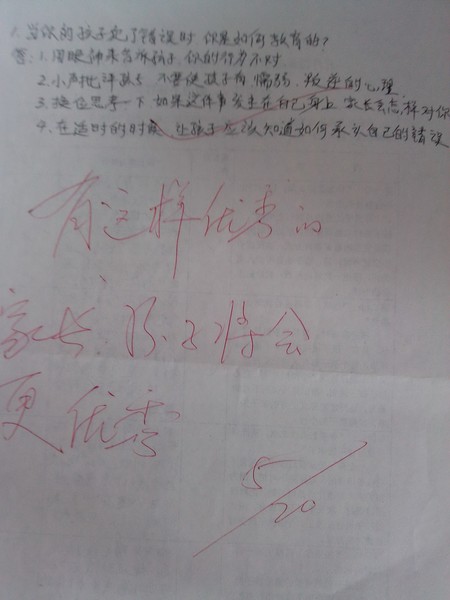 1. 当你的孩子犯了错误时 你是如何教育的?
答: 1. 用眼神来告诉孩子, 你的行为不对
2. 小声批评孩子 不要使孩子有懦弱、叛逆的心理
3. 换位思考一下 如果这件事发生在自己身上 家长会怎样对你
4. 在适时的时候 让孩子应该知道如何承认自己的错误
有这样优秀的
家长、孩子将会
更优秀
5/20